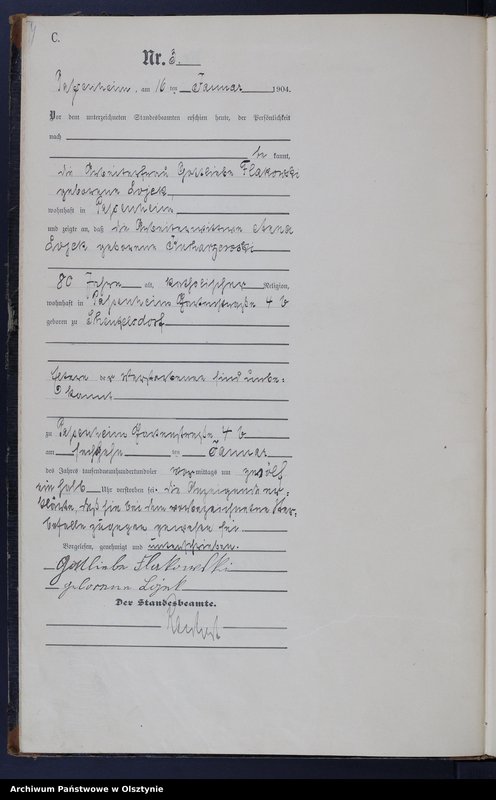 C.
Nr. 3.
Passenheim, am 16 ten Januar 1904.
Vor dem unterzeichneten Standesbeamten erschien heute, der Persönlichkeit
nach
be kannt,
die Arbeiterfrau Gottliebe Flakowski
geborene Lojek
wohnhaft in Passenheim
und zeigte an, daß die Arbeiterwittwe
Lojek geborene
80 Jahre alt, katholischer Religion,
wohnhaft in Passenheim Gartenstraße 4 b
geboren zu
Eltern der Verstorbenen sind unbe-
kannt
zu Passenheim Gartenstraße 4 b
am sechzehn ten Januar
des Jahres tausendneunhundertundvier vor mittags um zwölf
ein halb Uhr verstorben sei. Die Anzeigende er-
klärte, daß sie bei dem vorbezeichneten Ster-
befalle zugegen gewesen sei.
Vorgelesen, genehmigt und unterschrieben.
Gottliebe Flakowski
geborene Lojek
Der Standesbeamte.
Archiwum Państwowe w Olsztynie